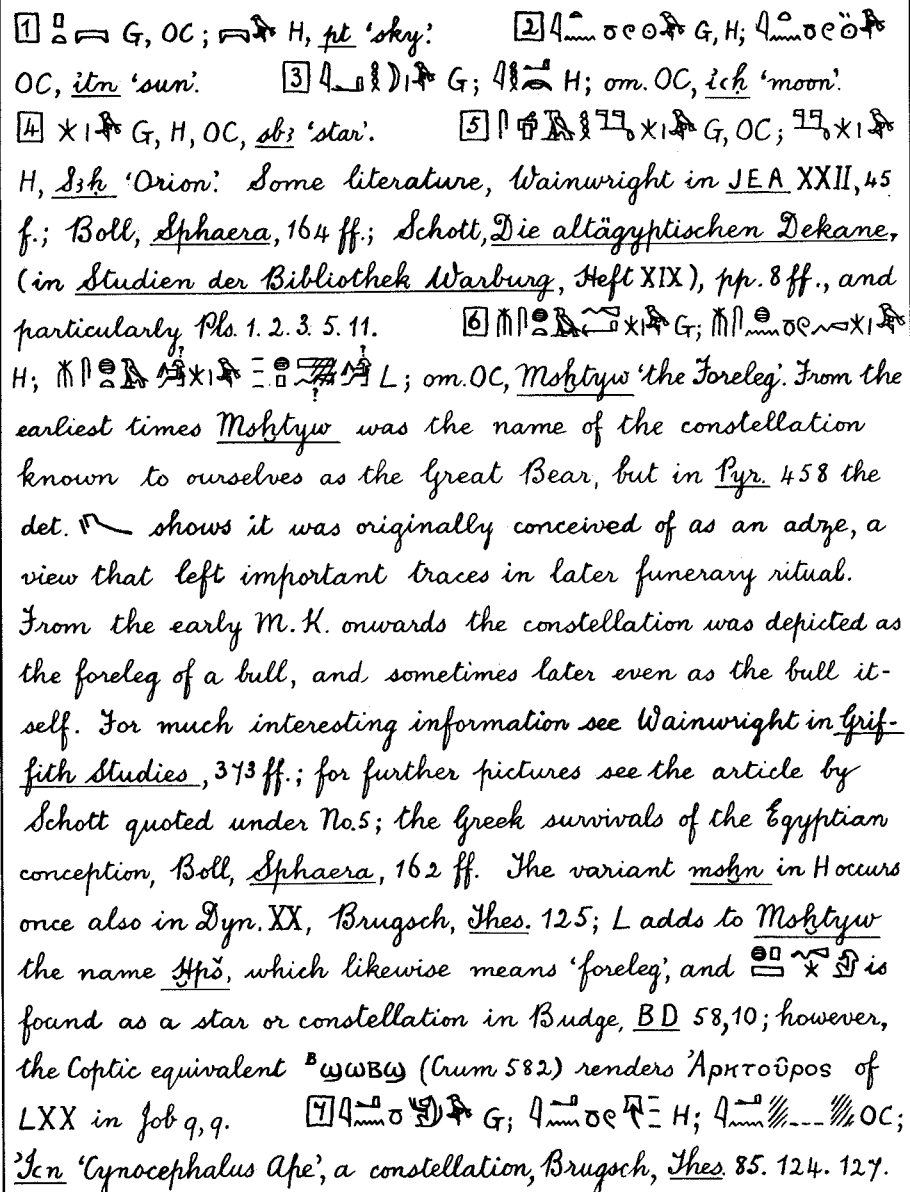 1 G, OC; H, pt ‘sky’. 2 G, H;
OC, itn ‘sun’. 3 G; H; om. OC, iꜥḥ ‘moon’.
4 G, H, OC, sbꜣ ‘star’. 5 G, OC;
H, Sꜣḥ ‘Orion’. Some literature, Wainwright in JEA XXII, 45
f.; Boll, Sphaera, 164 ff.; Schott, Die altägyptischen Dekane,
(in Studien der Bibliothek Warburg, Heft XIX), pp. 8 ff., and
particularly Pls. 1. 2. 3. 5. 11. 6 G;
H; L; om. OC, Msḫtyw ‘the Foreleg’. From the
earliest times Msḫtyw was the name of the constellation
known to ourselves as the Great Bear, but in Pyr. 458 the
det. shows it was originally conceived of as an adze, a
view that left important traces in later funerary ritual.
From the early M.K. onwards the constellation was depicted as
the foreleg of a bull, and sometimes later even as the bull it-
self. For much interesting information see Wainwright in Grif-
fith Studies, 373 ff.; for further pictures see the article by
Schott quoted under No. 5; the Greek survivals of the Egyptian
conception, Boll, Sphaera, 162 ff. The variant msḫn in H occurs
once also in Dyn. XX, Brugsch, Thes. 125; L adds to Msḫtyw
the name Ḫpš, which likewise means ‘foreleg’, and is
found as a star or constellation in Budge, BD 58,10; however,
the Coptic equivalent ᴮϣⲱⲃϣ (Crum 582) renders Ἀρκτοῦρος of
LXX in Job 9,9. 7 G; H; OC;
’Iꜥn ‘Cynocephalus Ape’, a constellation, Brugsch, Thes. 85. 124. 127.